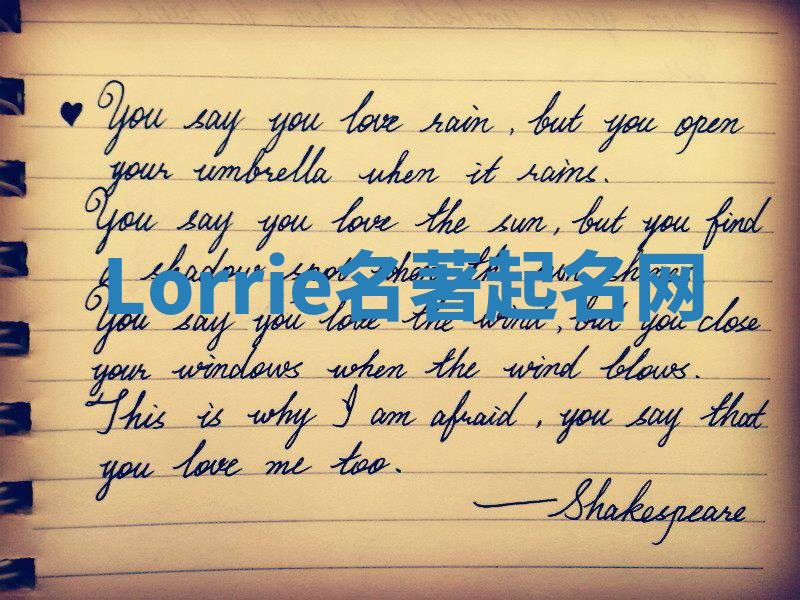 You say you love rain, but you open
your umbrella when it rains.
You say you love the sun, but you find
a shadow spot when the sun shines.
Lorrie名著起名网
You say you love the wind, but you close
your windows when the wind blows.
This is why I am afraid, you say that
you love me too.
—Shakespeare